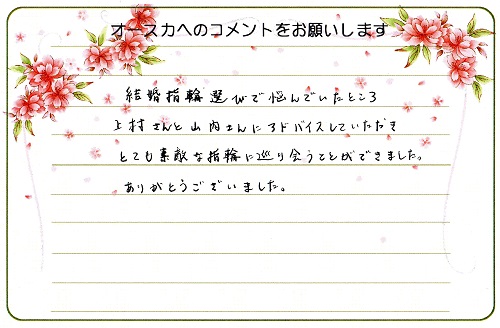 オースカへのコメントをお願いします
結婚指輪選びで悩んでいたところ
上村さんと山内さんにアドバイスしていただき
とても素敵な指輪に巡り会うことができました。
ありがとうございました。